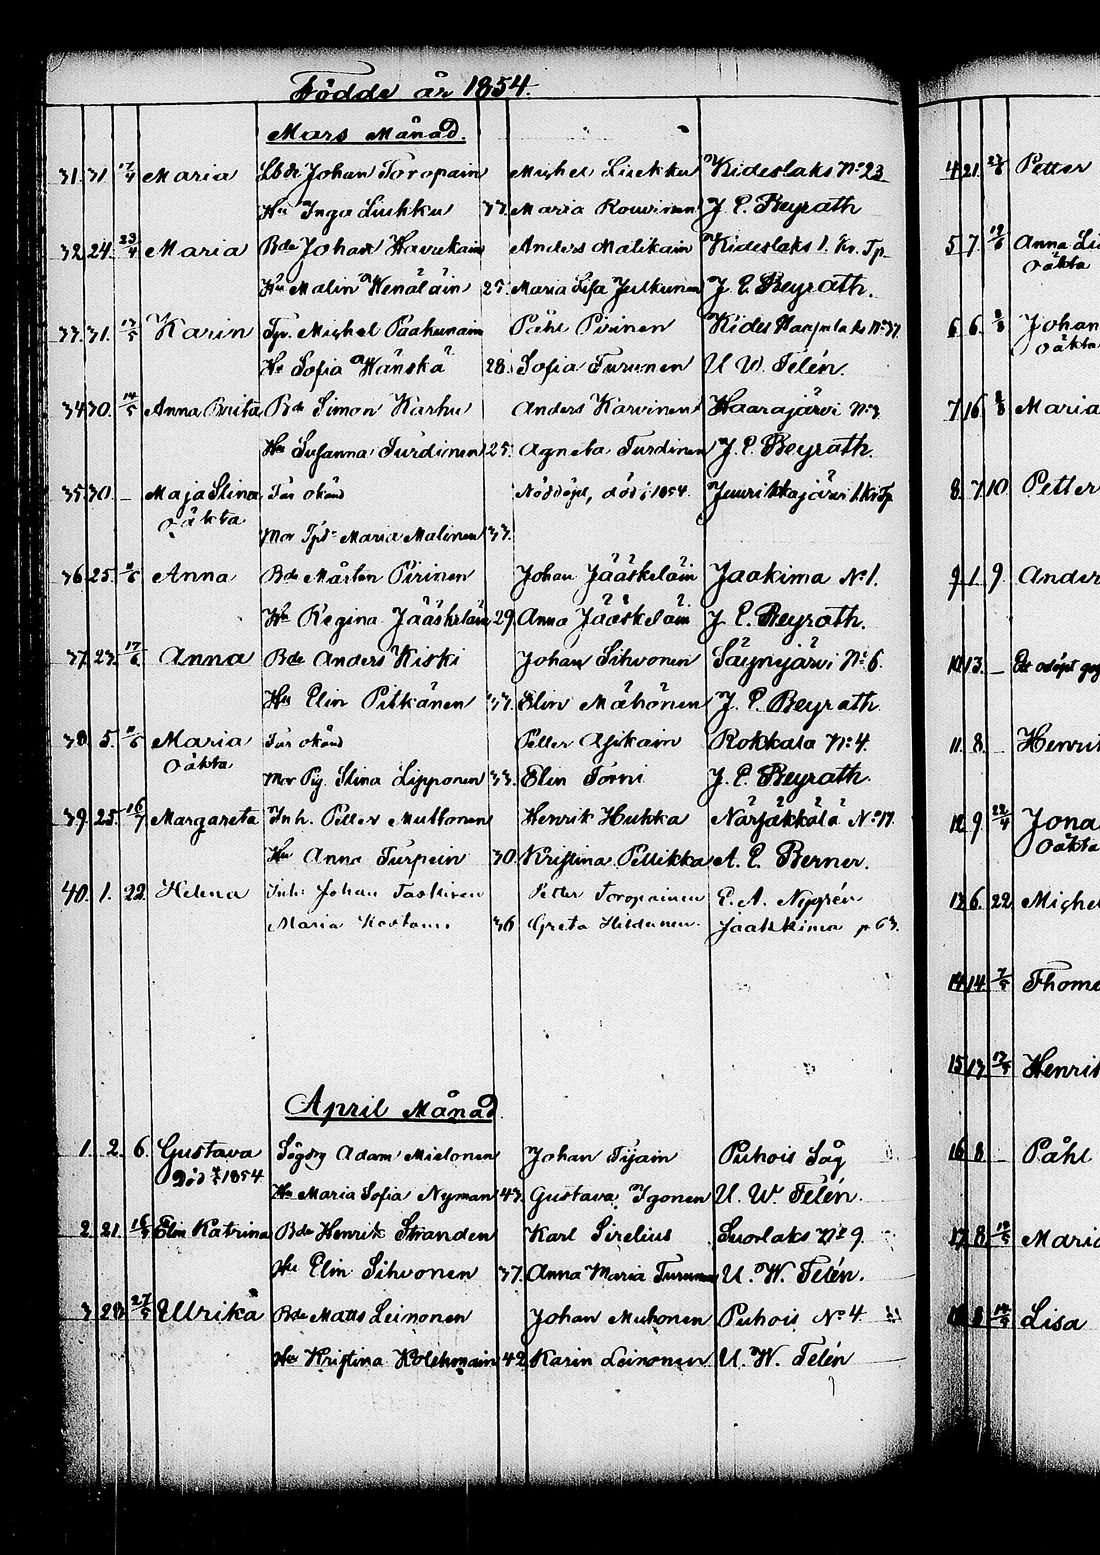 Födde år 1854.
Mars Månad.
31. 31 17/4 Maria Lbdr Johan Toropain Michel Liukku Kideslaks No 23
Hu Inga Liukku 37. Maria Rouvinen J. E. Beyrath
32. 24. 23/4 Maria Bde Johan Havukain Anders Malikain Kideslaks 1. Kv. Tp.
Hu Malin Wenäläin 25. Maria Lisa Julkunen J. E. Beyrath.
33. 31. 13/5 Karin Tp. Michel Paakunain Påhl Pirinen Kides No 37.
Hu Sofia Wänskä 28. Sofia Turunen U. W. Telén.
34 30. 14/5 Anna Brita Bde Simon Karhu Anders Karvinen Haarajärvi No 3
Hu Susanna Turdinen 25. Agneta Turdinen J. E. Beyrath.
35. 30. — Maja Stina Far okänd Nöddöpt, död i 1854. Juurikkajärvi 1. Kv. Tp
oäkta
Mor Maria Malinen 33.
36. 25. Anna Bde Mårten Pirinen Johan Jääskeläin Jaakima No 1.
Hu Regina Jääskeläin 29. Anna Jääskeläin J. E. Beyrath.
37. 23. 17/6 Anna Bde Anders Kiski Johan Sihvonen Säynyjärvi No 6.
Hu Elin Pitkänen 37. Elin Mähönen J. E. Beyrath
38. 5. Maria Far okänd Petter Asikain Rokkala No 4.
oäkta
Mor Pig. Stina Lipponen 33. Elin Torni J. E. Beyrath.
39. 25. 16/7 Margareta Inh. Petter Muttonen Henrik Hukka Närjäkkälä No 17
Hu Anna Turpein 30 Kristina Pellikka A. E. Berner.
40. 1. 22. Helena Inh: Johan Taskinen Petter Toropainen E. A. Neppén
Maria Kostamo 36 Greta Hildunen. Jaakkima p 63.
April Månad
1. 2. 6. Gustava Sågdr Adam Mielonen Johan Tijain Puhois Såg
Död 1854
Hu Maria Sofia Nyman 43. Gustava Igonen U. W. Telén.
2. 21. Elin Katrina Bde Henrik Stranden Karl Sirelius Suorlaks No 9.
Hu Elin Sihvonen 37. Anna Maria Turunen U. W. Telén.
3. 23 27/5 Ulrika Bde Matts Leinonen Johan Muhonen Puhois No 4.
Hu Kristina Kolehmain 42 Karin Leinonen U. W. Telén
4. 21. Petter
5 7. Anna
oäkta
6. 6. Johan
oäkta
7. 16. Maria
8. 7 10. Petter
9. 1. 9. Ander
10. 13. —
11. 8. — Henrik
12. 9. 22/4 Jona
oäkta
13. 6. 22. Michel
14. 14. 7/5 Thoma
15. 13. Henrik
16 8. — Påhl
17. 8. Maria
18. 8. Lisa